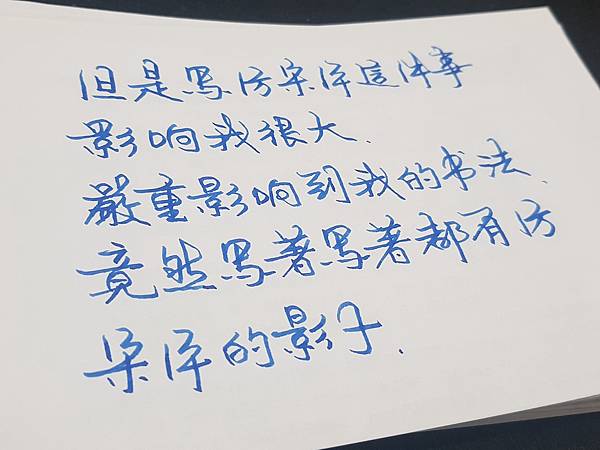 但是寫仿宋体這件事
影响我很大.
嚴重影响到我的书法.
竟然寫著寫著都有仿
宋体的影子.